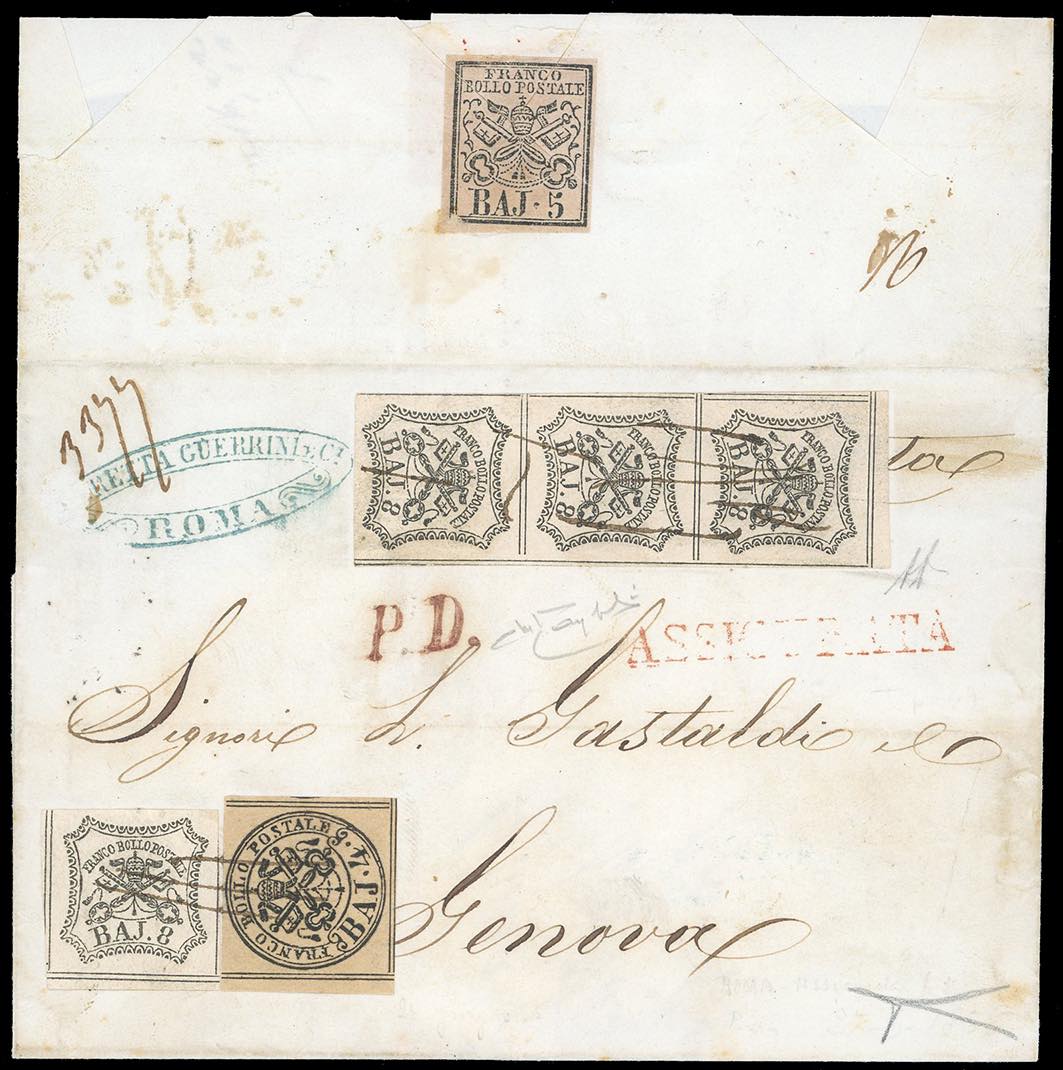 FRANCO
BOLLO POSTALE
BAJ. 5
3377
GUERRINI & C.
ROMA
FRANCO BOLLO POSTALE
BAJ. 8
FRANCO BOLLO POSTALE
BAJ. 8
FRANCO BOLLO POSTALE
BAJ. 8
P.D.
ASSICURATA
Signori L. Gastaldi e
FRANCO BOLLO POSTALE
BAJ. 8
FRANCO BOLLO POSTALE
BAJ. 4
Genova